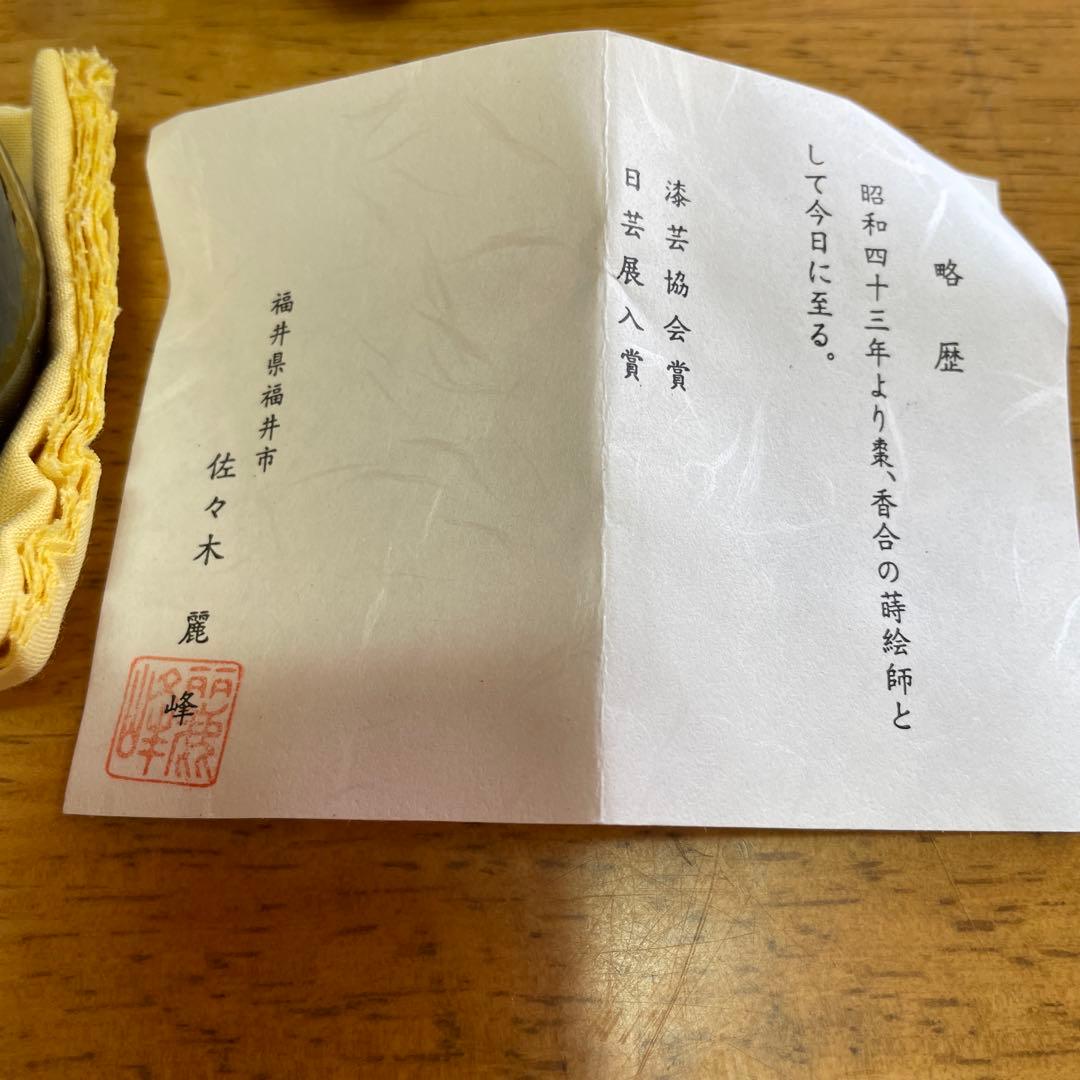 略歴
昭和四十三年より棗、香合の蒔絵師と
して今日に至る。
漆芸協会賞
日芸展入賞
福井県福井市
佐々木麗峰
麗峰